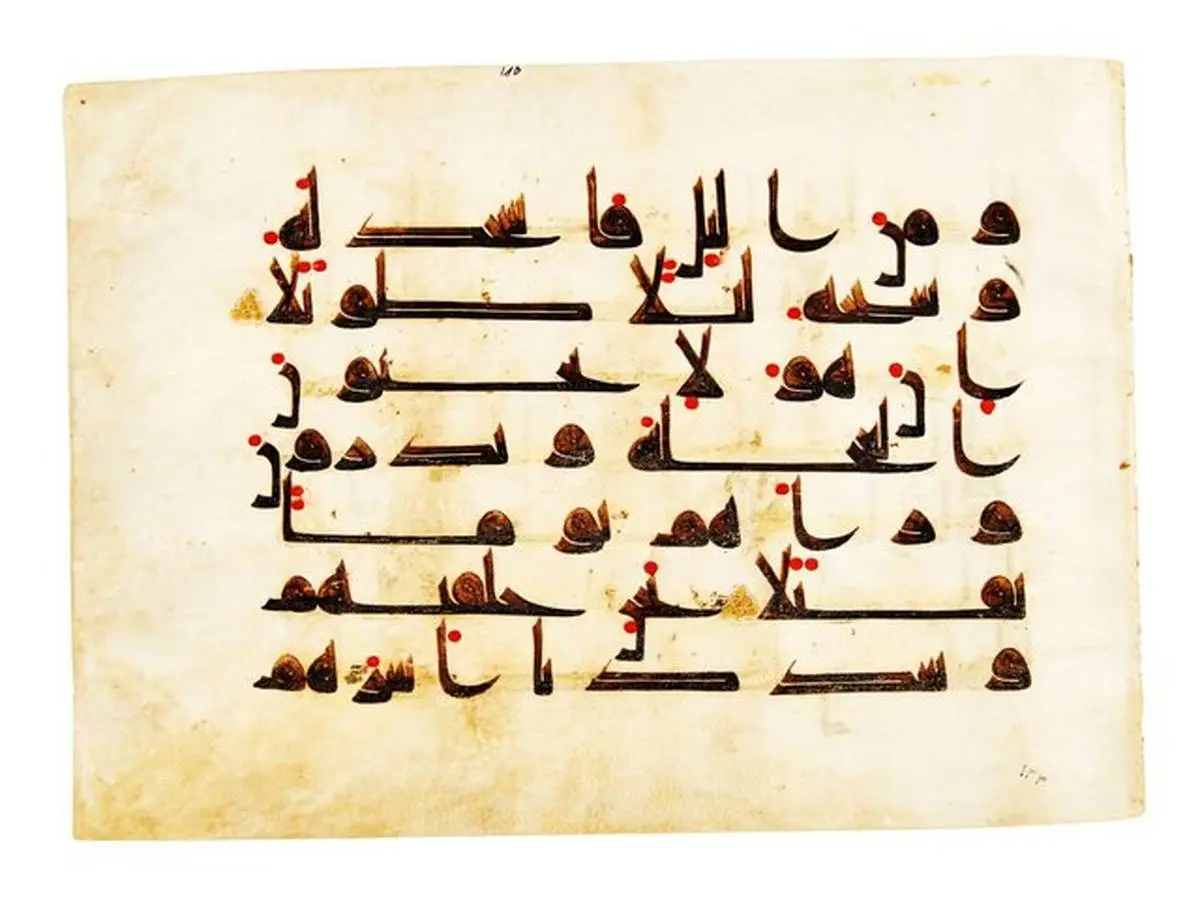 و من ا ليل فا سجد له
و سبحه ليلا طو يلا
ا ن هو لا يحبو ن
ا لعجلة و يذ رو ن
و ر ا هم يو ما
ثقيلا نحن خلقنهم
و شد د نا ا سر هم